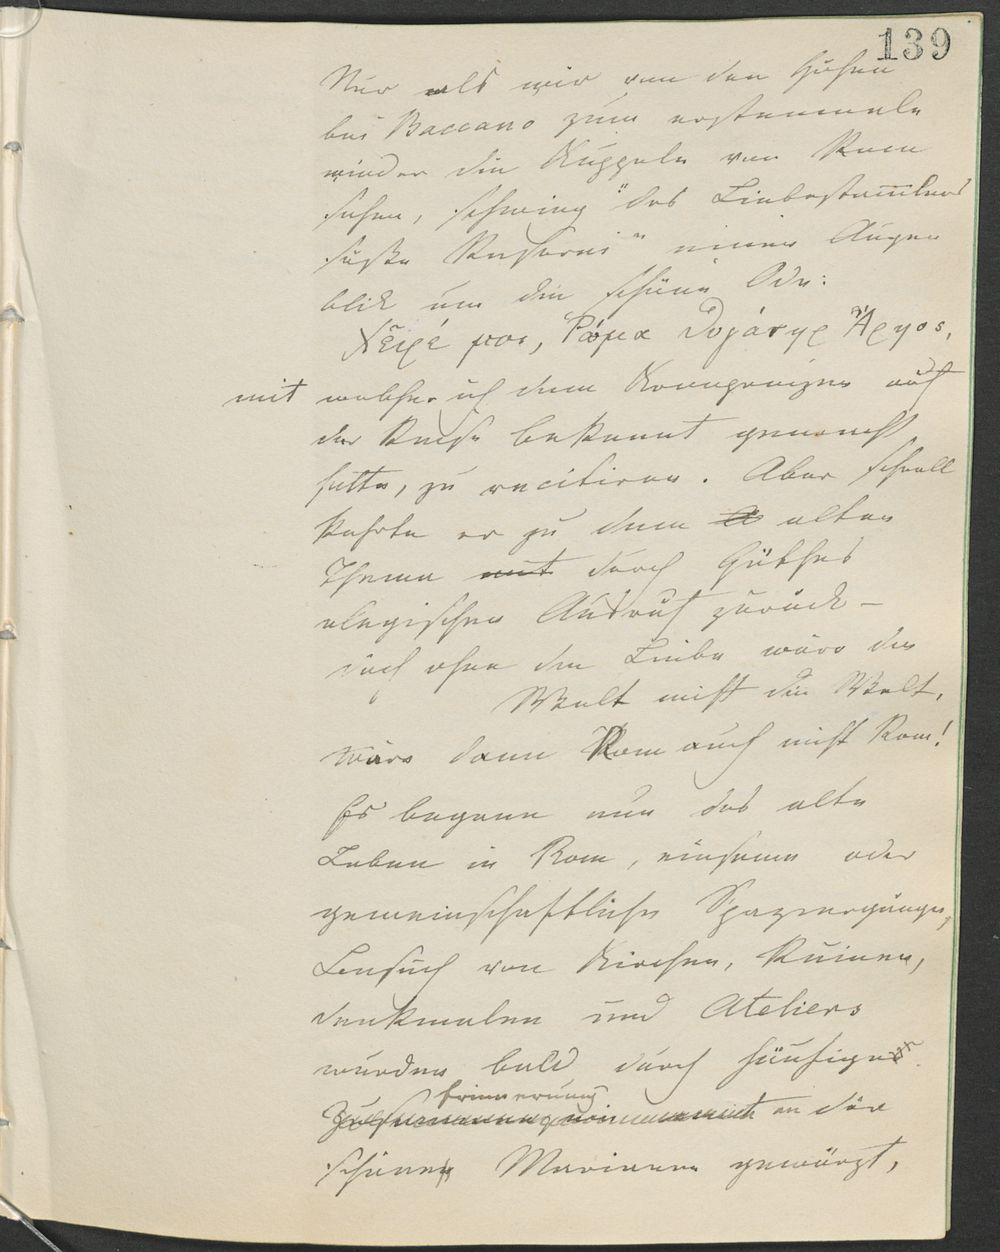 139
Nur als wir von den Höhen
bei Baccano zum erstenmale
wieder die Kuppeln von Rom
sahen, schwieg "des Liebestam̅lers
süße Raserei" einen Augen
blick um die schöne Ode:
Χαῖρέ μοι, Ῥώμα θυγάτηρ Ἄρηος,
mit welcher ich den auf
der Reise bekannt gemacht
hatte, zu recitiren. Aber schnell
kehrte er zu dem alten
Thema mit durch Göthes
elegischen Ausruf zurück –
doch ohne die Liebe wäre die
Welt nicht die Welt,
wäre denn Rom auch nicht Rom!
Es begann nun das alte
Leben in Rom, einsame oder
gemeinschaftliche Spaziergänge,
Besuch von Kirchen, Ruinen,
Denkmalen und Ateliers
wurden bald durch häufige
Erinnerung
an die
schöne Marianne gewürzt,